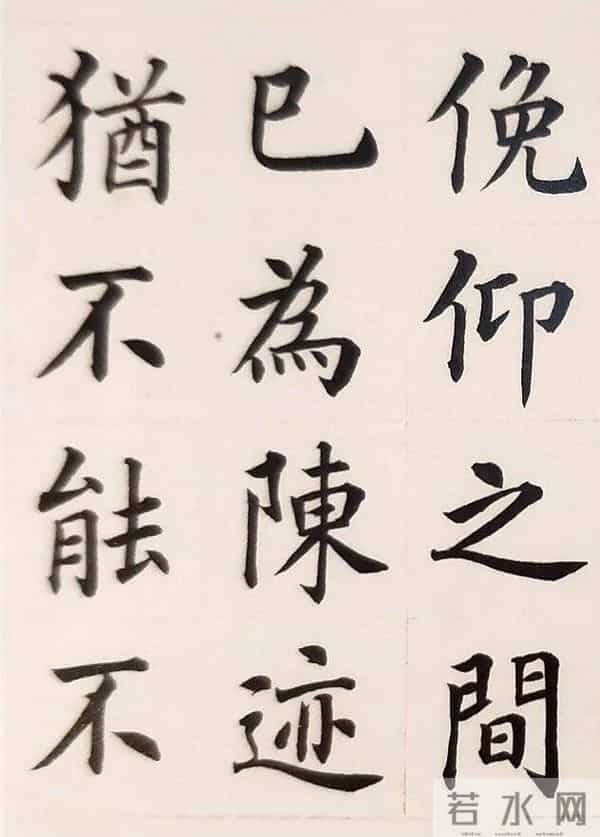 俛仰之間
已為陳迹
猶不能不
若水网